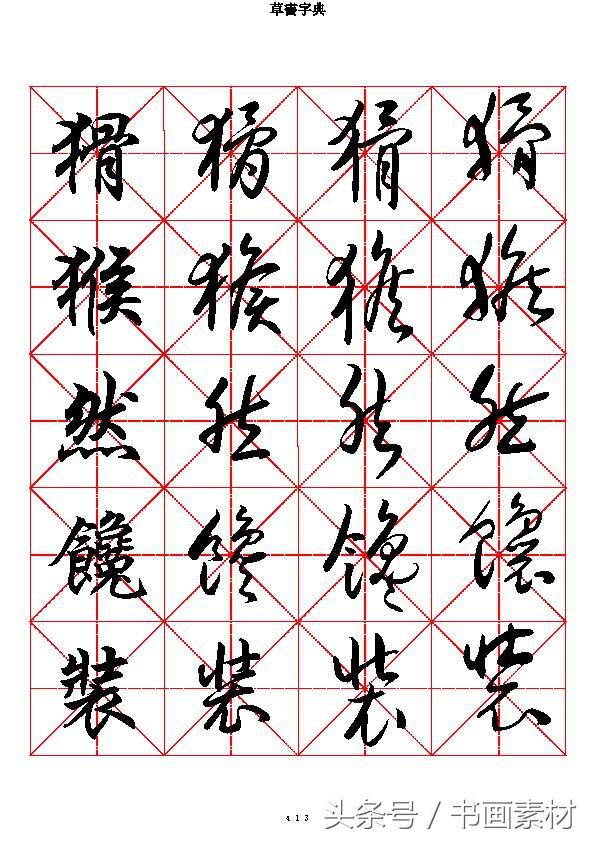 草書字典
猾 猾 猾 猾
猴 猴 猴 猴
然 然 然 然
饞 饞 饞 饞
裝 裝 裝 裝
413
头条号 / 书画素材